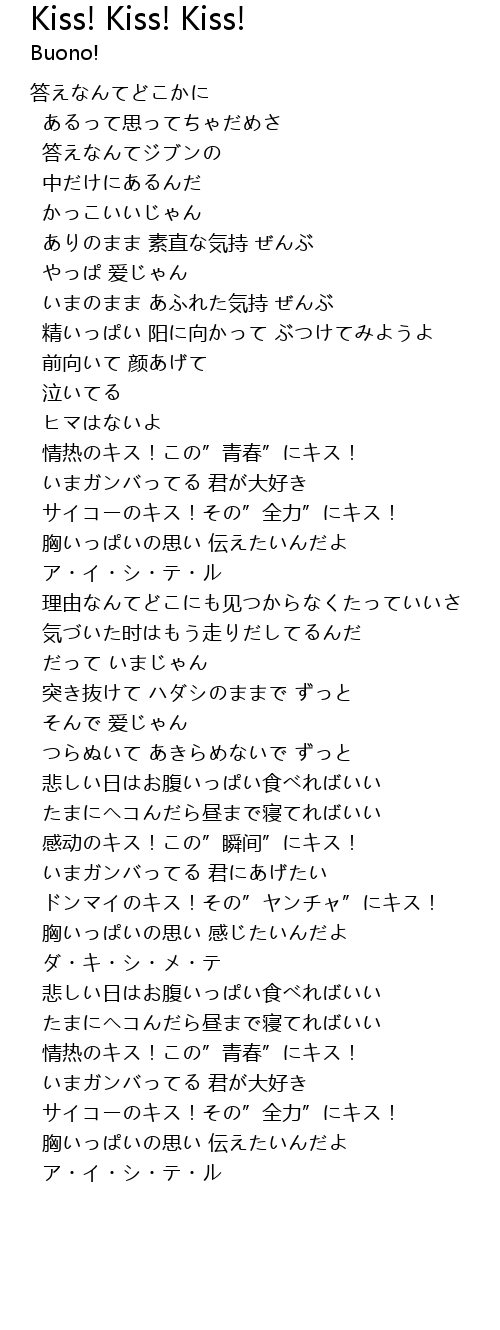 Kiss! Kiss! Kiss!
Buono!
答えなんてどこかに
あるって思ってちゃだめさ
答えなんてジブンの
中だけにあるんだ
かっこいいじゃん
ありのまま 素直な気持 ぜんぶ
やっぱ 爱じゃん
いまのまま あふれた気持 ぜんぶ
精いっぱい 阳に向かって ぶつけてみようよ
前向いて 颜あげて
泣いてる
ヒマはないよ
情热のキス！この”青春”にキス！
いまガンバってる 君が大好き
サイコーのキス！その”全力”にキス！
胸いっぱいの思い 伝えたいんだよ
ア・イ・シ・テ・ル
理由なんてどこにも见つからなくたっていいさ
気づいた时はもう走りだしてるんだ
だって いまじゃん
突き抜けて ハダシのままで ずっと
そんで 爱じゃん
つらぬいて あきらめないで ずっと
悲しい日はお腹いっぱい食べればいい
たまにヘコんだら昼まで寝てればいい
感动のキス！この”瞬间”にキス！
いまガンバってる 君にあげたい
ドンマイのキス！その”ヤンチャ”にキス！
胸いっぱいの思い 感じたいんだよ
ダ・キ・シ・メ・テ
悲しい日はお腹いっぱい食べればいい
たまにヘコんだら昼まで寝てればいい
情热のキス！この”青春”にキス！
いまガンバってる 君が大好き
サイコーのキス！その”全力”にキス！
胸いっぱいの思い 伝えたいんだよ
ア・イ・シ・テ・ル